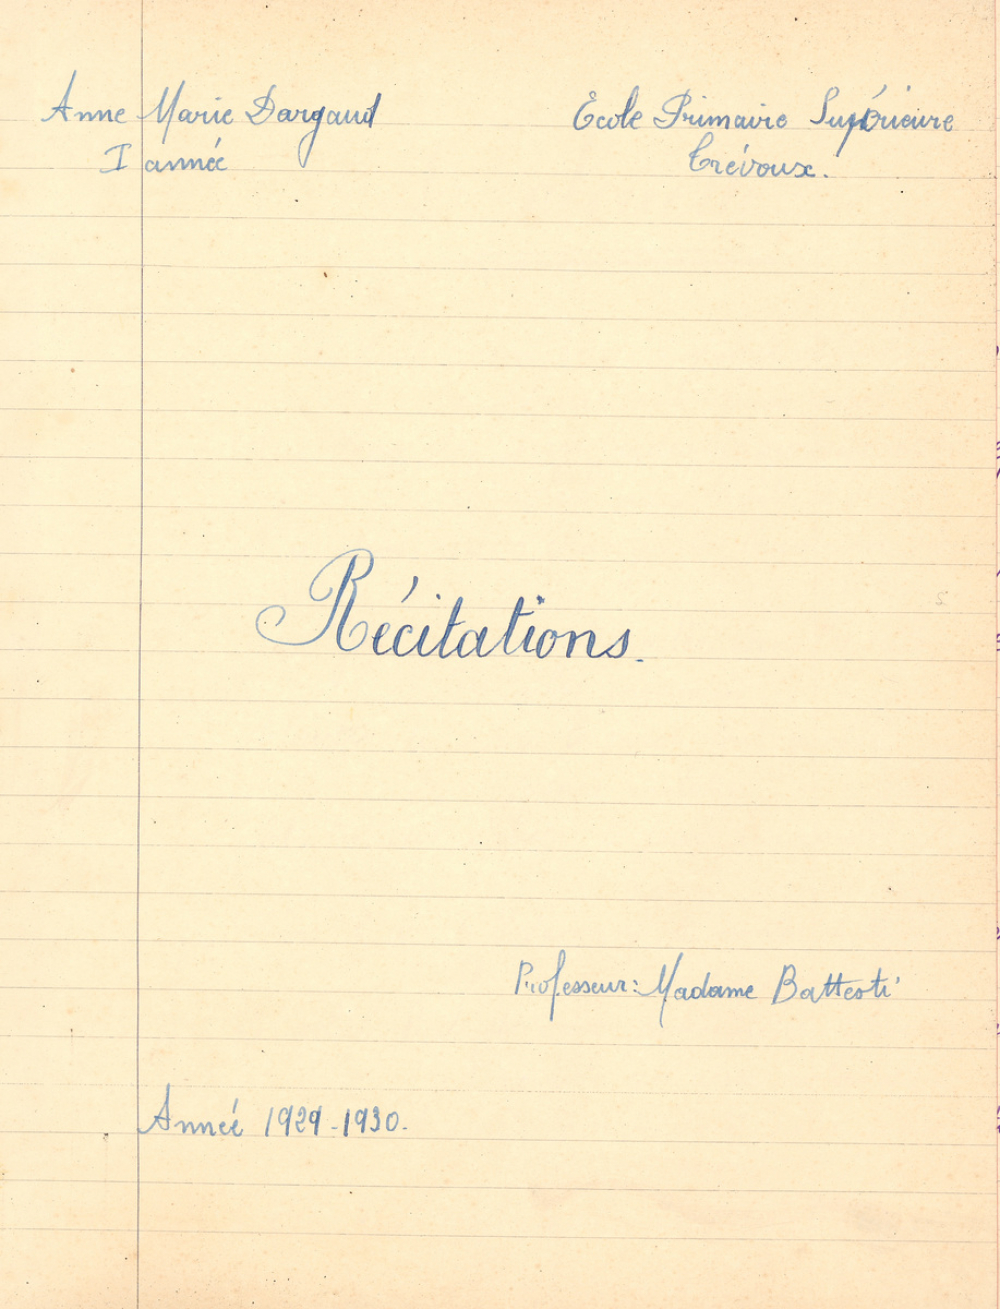 Anne Marie Dargaud
École Primaire Supérieure
I année
Trévoux.
Récitations.
Professeur: Madame Battesti
Année 1929-1930.